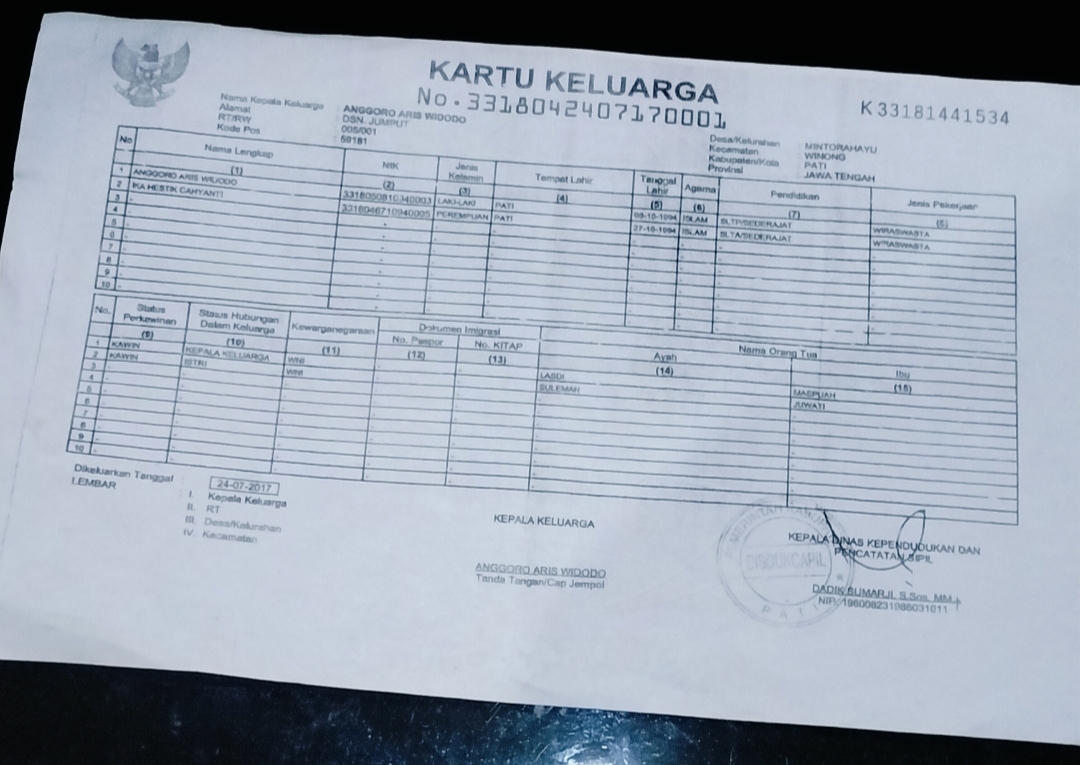 KARTU KELUARGA
No. 3318042407170001
K 33181441534
Nama Kepala Keluarga : ANGGORO ARIS WIDODO
Alamat : DSN. JUMPUT
RT/RW : 005/001
Kode Pos : 59181
Desa/Kelurahan : MINTORAHAYU
Kecamatan : WINONG
Kabupaten/Kota : PATI
Provinsi : JAWA TENGAH
No Nama Lengkap NIK Jenis Kelamin Tempat Lahir Tanggal Lahir Agama Pendidikan Jenis Pekerjaan
(1) (2) (3) (4) (5) (6) (7) (8)
1 ANGGORO ARIS WIDODO 3318050810940003 LAKI-LAKI PATI 08-10-1994 ISLAM SLTP/SEDERAJAT WIRASWASTA
2 IKA HESTIK CAHYANTI 3318046710940005 PEREMPUAN PATI 27-10-1994 ISLAM SLTA/SEDERAJAT WIRASWASTA
3 -
4 -
5 -
6 -
7 -
8 -
9 -
10 -
No. Status Perkawinan Status Hubungan Dalam Keluarga Kewarganegaraan Dokumen Imigrasi Nama Orang Tua
No. Paspor No. KITAP Ayah Ibu
(9) (10) (11) (12) (13) (14) (15)
1 KAWIN KEPALA KELUARGA WNI - - LASDI MASPUAH
2 KAWIN ISTRI WNI - - SULEMAN JUWATI
3 -
4 -
5 -
6 -
7 -
8 -
9 -
10 -
Dikeluarkan Tanggal : 24-07-2017
LEMBAR : I. Kepala Keluarga
II. RT
III. Desa/Kelurahan
IV. Kecamatan
KEPALA KELUARGA
ANGGORO ARIS WIDODO
Tanda Tangan/Cap Jempol
KEPALA DINAS KEPENDUDUKAN DAN
PENCATATAN SIPIL
DADIK SUMARJI, S.Sos, MM
NIP. 196008231986031011
DISDUKCAPIL
PATI